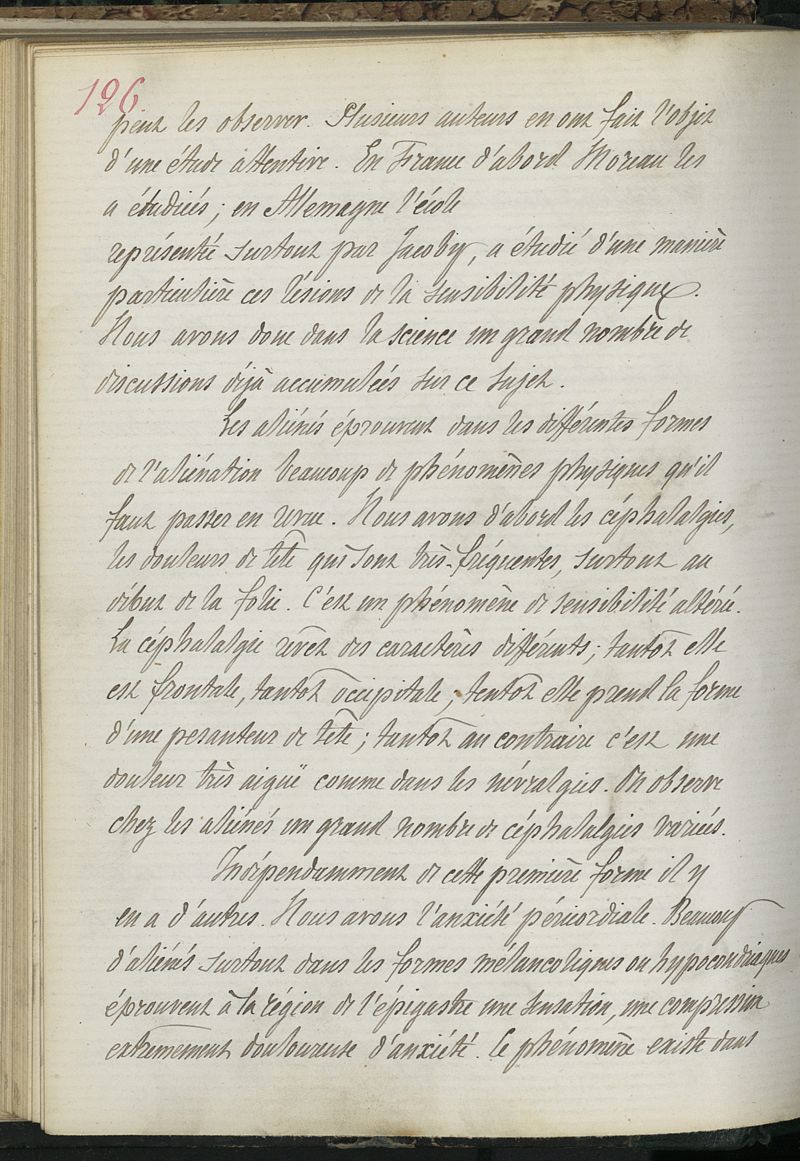 126
peut les observer. Plusieurs auteurs en ont fait l'objet
d'une étude attentive. En France d'abord Moreau les
a étudiés ; en Allemagne l'école
représentée surtout par Jacoby, a étudié d'une manière
particulière ces lésions de la sensibilité physique.
Nous avons donc dans la science un grand nombre de
discussions déjà accumulées sur ce sujet.
Les aliénés éprouvent dans les différentes formes
de l'aliénation beaucoup de phénomènes physiques qu'il
faut passer en revue. Nous avons d'abord les céphalalgies,
les douleurs de tête qui sont très-fréquentes, surtout au
début de la folie. C'est un phénomène de sensibilité altérée.
La céphalalgie revêt des caractères différents ; tantôt elle
est frontale, tantôt occipitale ; tentôt elle prend la forme
d'une pesanteur de tête ; tantôt au contraire c'est une
douleur très aiguë comme dans les névralgies. On observe
chez les aliénés un grand nombre de céphalalgies variées.
Indépendamment de cette première forme il y
en a d'autres. Nous avons l'anxiété précordiale. Beaucoup
d'aliénés surtout dans les formes mélancoliques ou hypocondriaques
éprouvent à la région de l'épigastre une sensation, une compression
extrêmement douloureuse d'anxiété. Ce phénomène existe dans